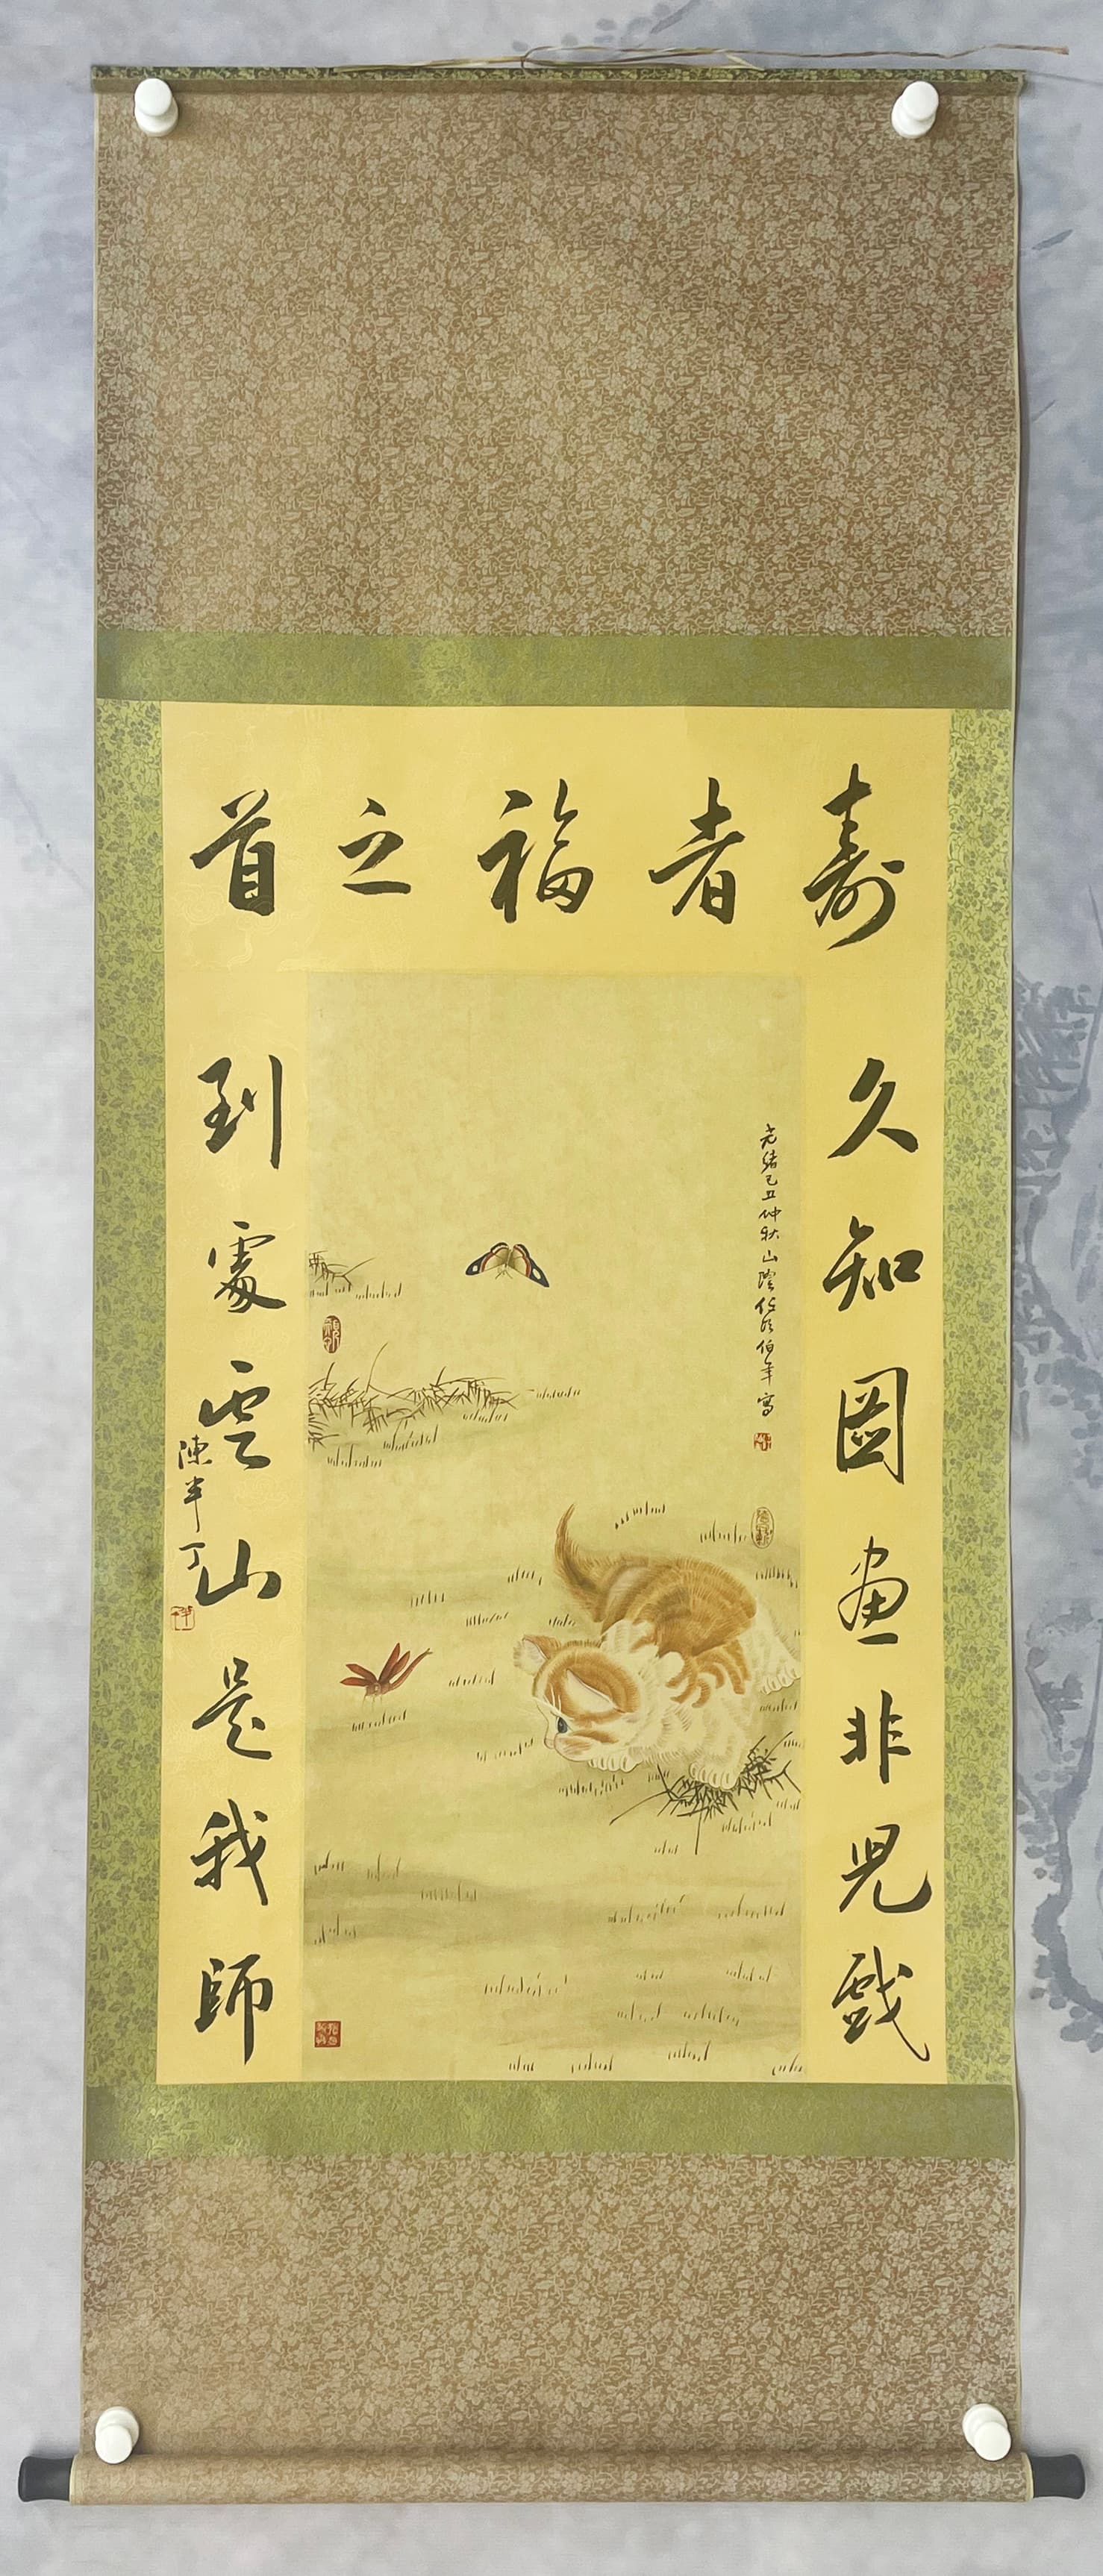 寿者福之首
久知圖画非兒戯
到處雲山是我師
陳半丁
光緒己丑仲秋山陰任頤伯年寫